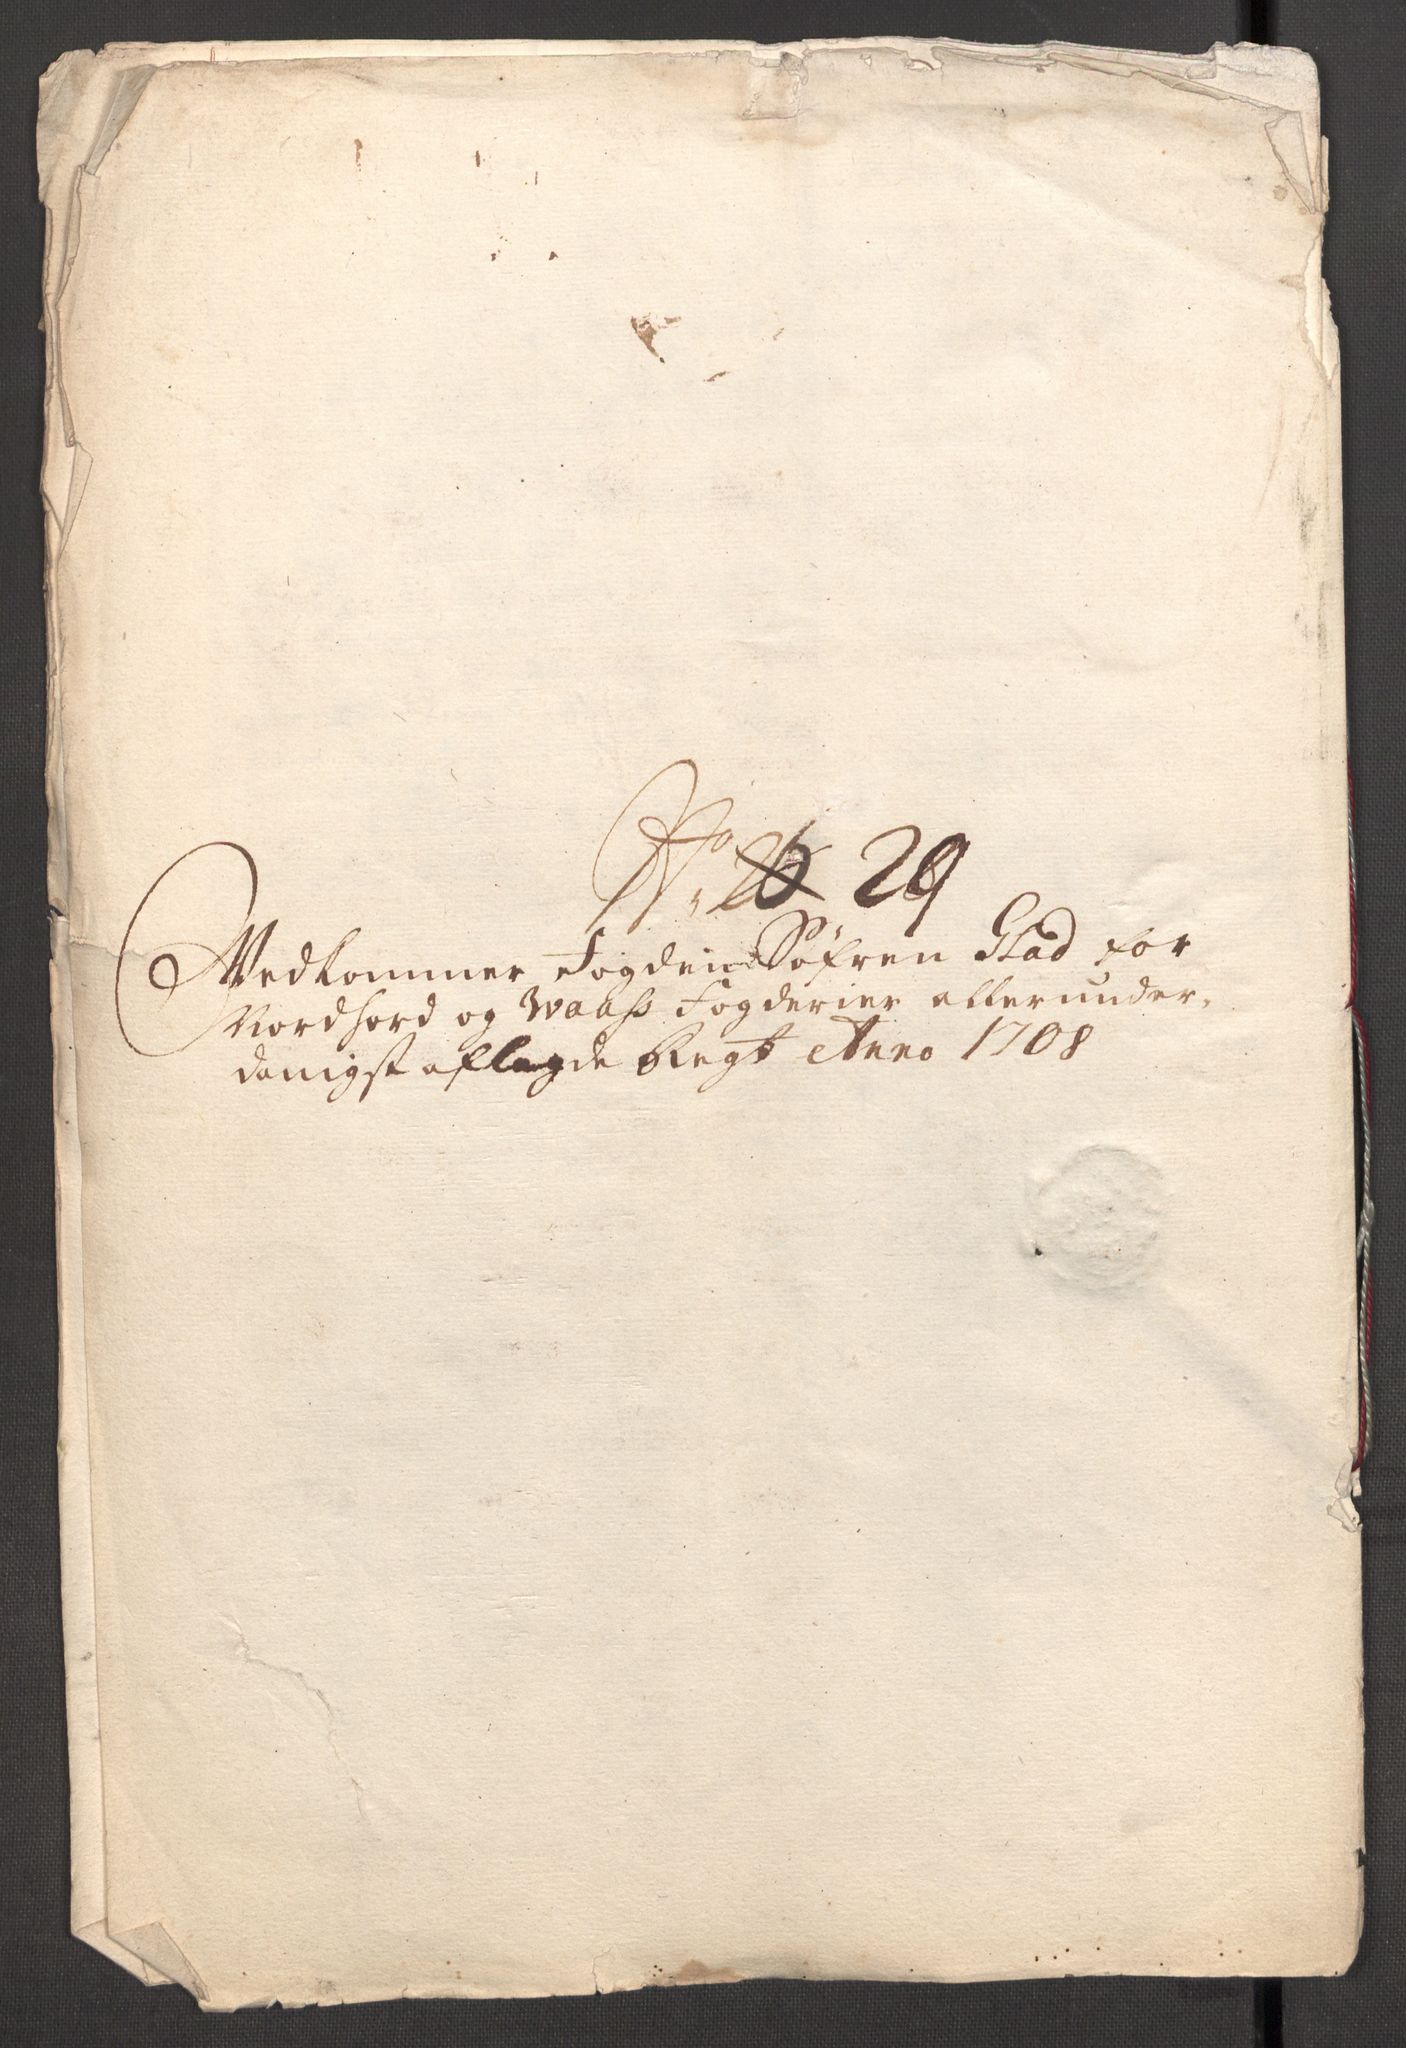 No. 26 29
Vedkommer Fogden Søfren Glad for
Nordhord og Waass Fogderier allerunder,
danigst aflagde Regt Anno 1708